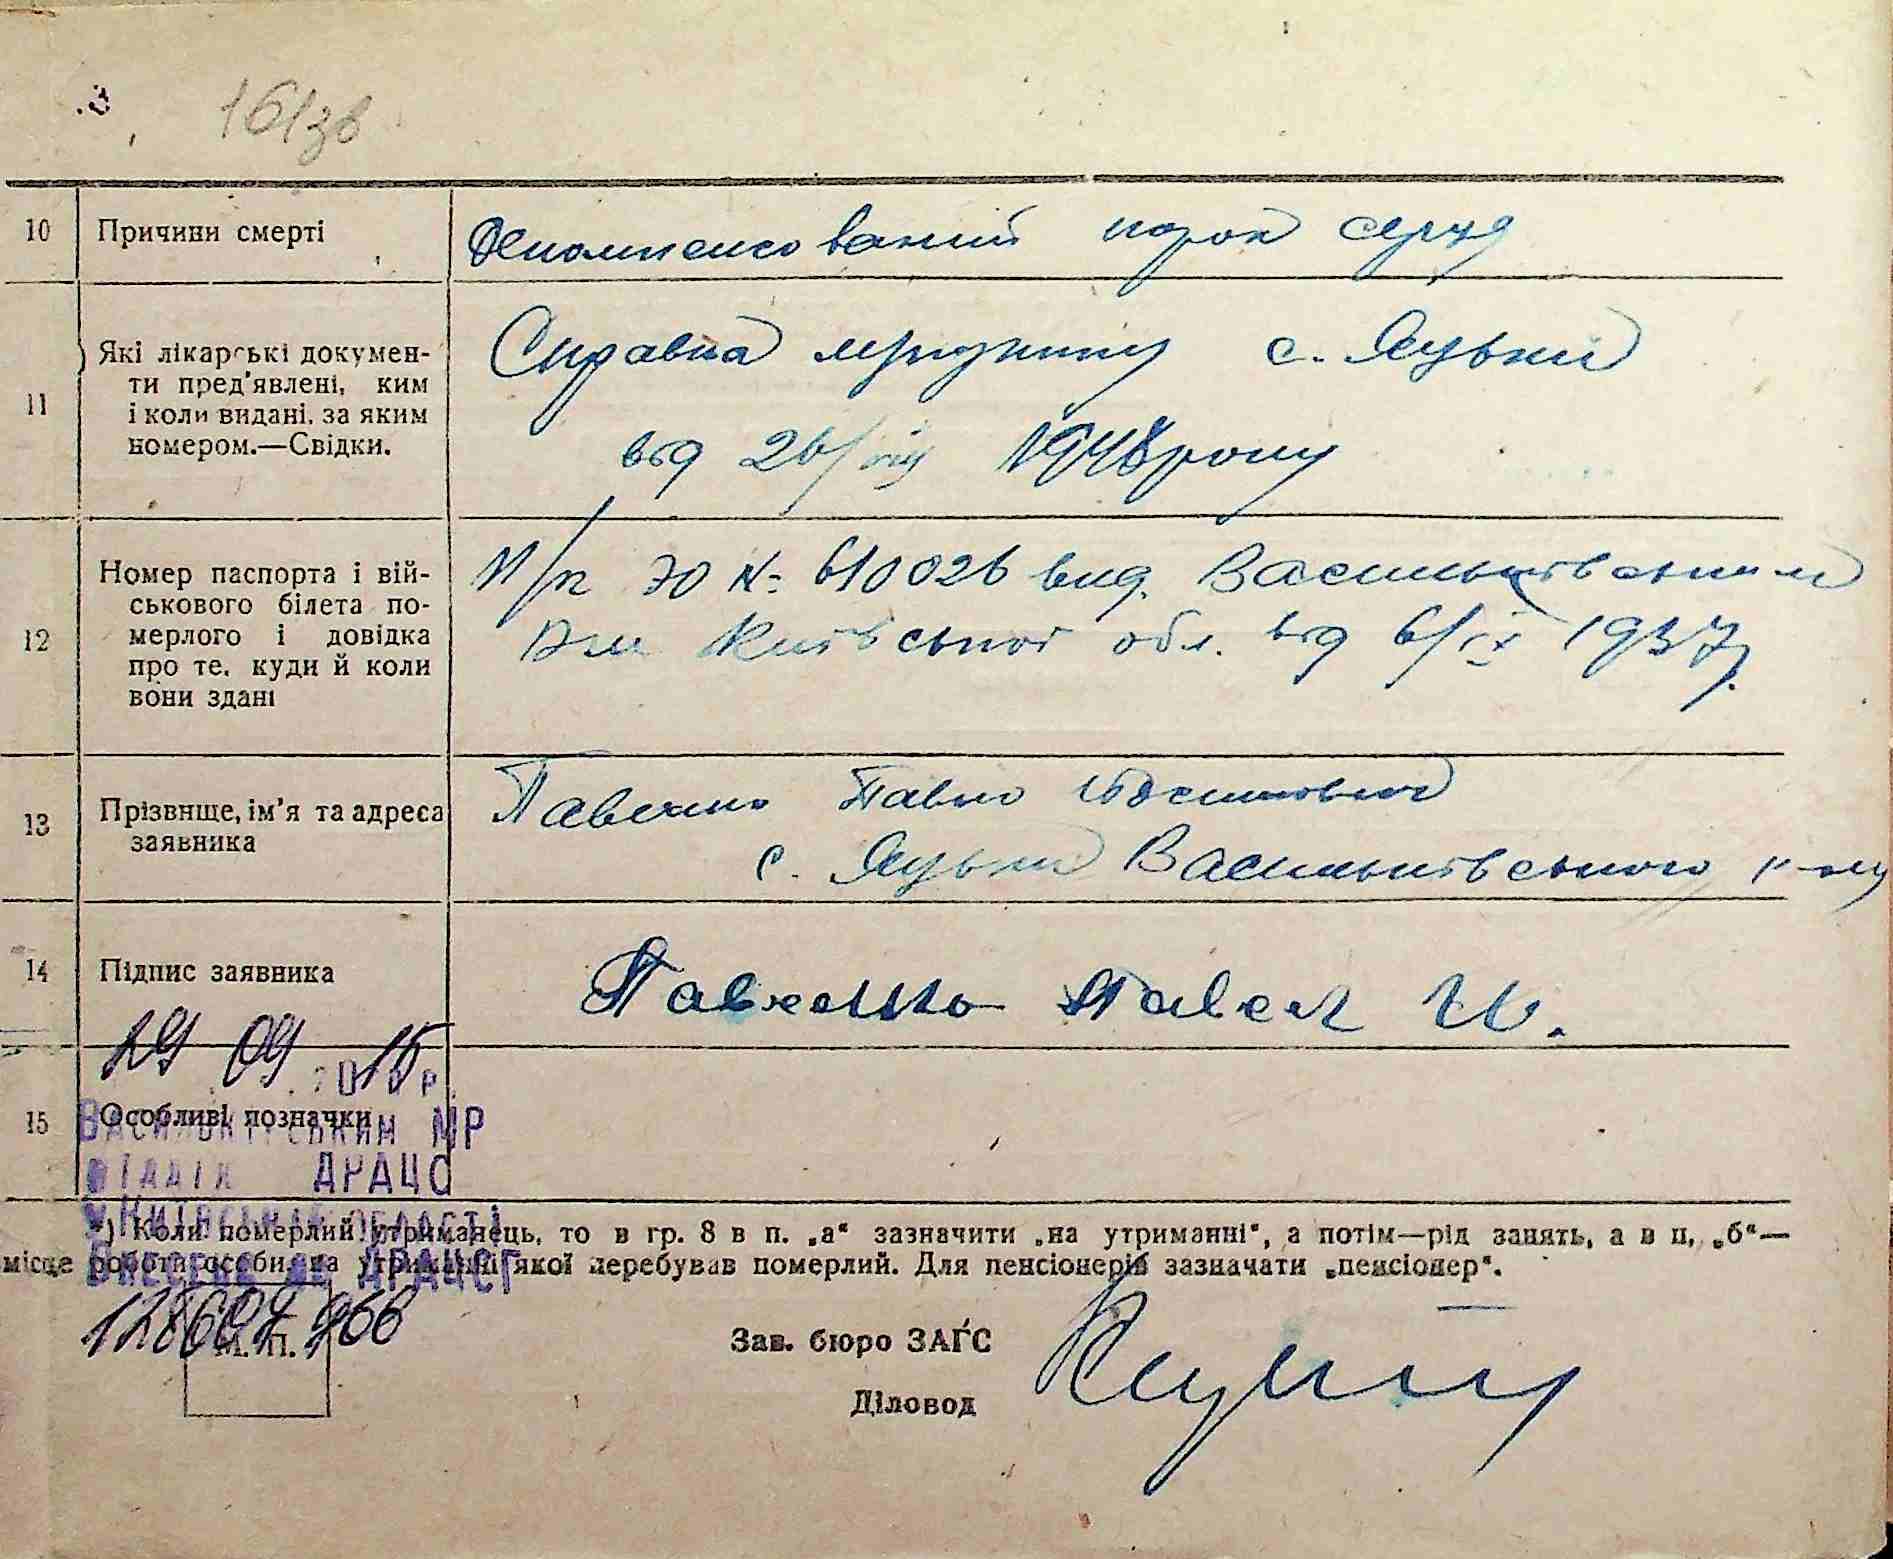 161зв
10 Причини смерті
Декомпенсований порок серця
11 Які лікарські докумен-
ти пред'явлені, ким
і коли видані, за яким
номером.—Свідки.
Справка медпункту с. Яцьки
від 26/ 1948 року
12 Номер паспорта і вій-
ськового білета по-
мерлого і довідка
про те, куди й коли
вони здані
П/п ЭЮ №: 610026 вид. Васильківським
Київської обл. від 6/ІХ 1937р.
13 Прізвище, ім'я та адреса
заявника
Павленко Павло
с. Яцьки Васильківського р-ну
14 Підпис заявника
Павленко Павел
29 09 2015р.
15 Особливі позначки
Васильківським МР
відділ ДРАЦС
Київській області
Внесено до ДРАЦСГ
*) Коли померлий утриманець, то в гр. 8 в п. „а“ зазначити „на утриманні“, а потім—рід занять, а в п, „б“—
місце роботи особи, на утриманні якої перебував померлий. Для пенсіонерів зазначати „пенсіонер“.
М. П.
Зав. бюро ЗАГС
Діловод